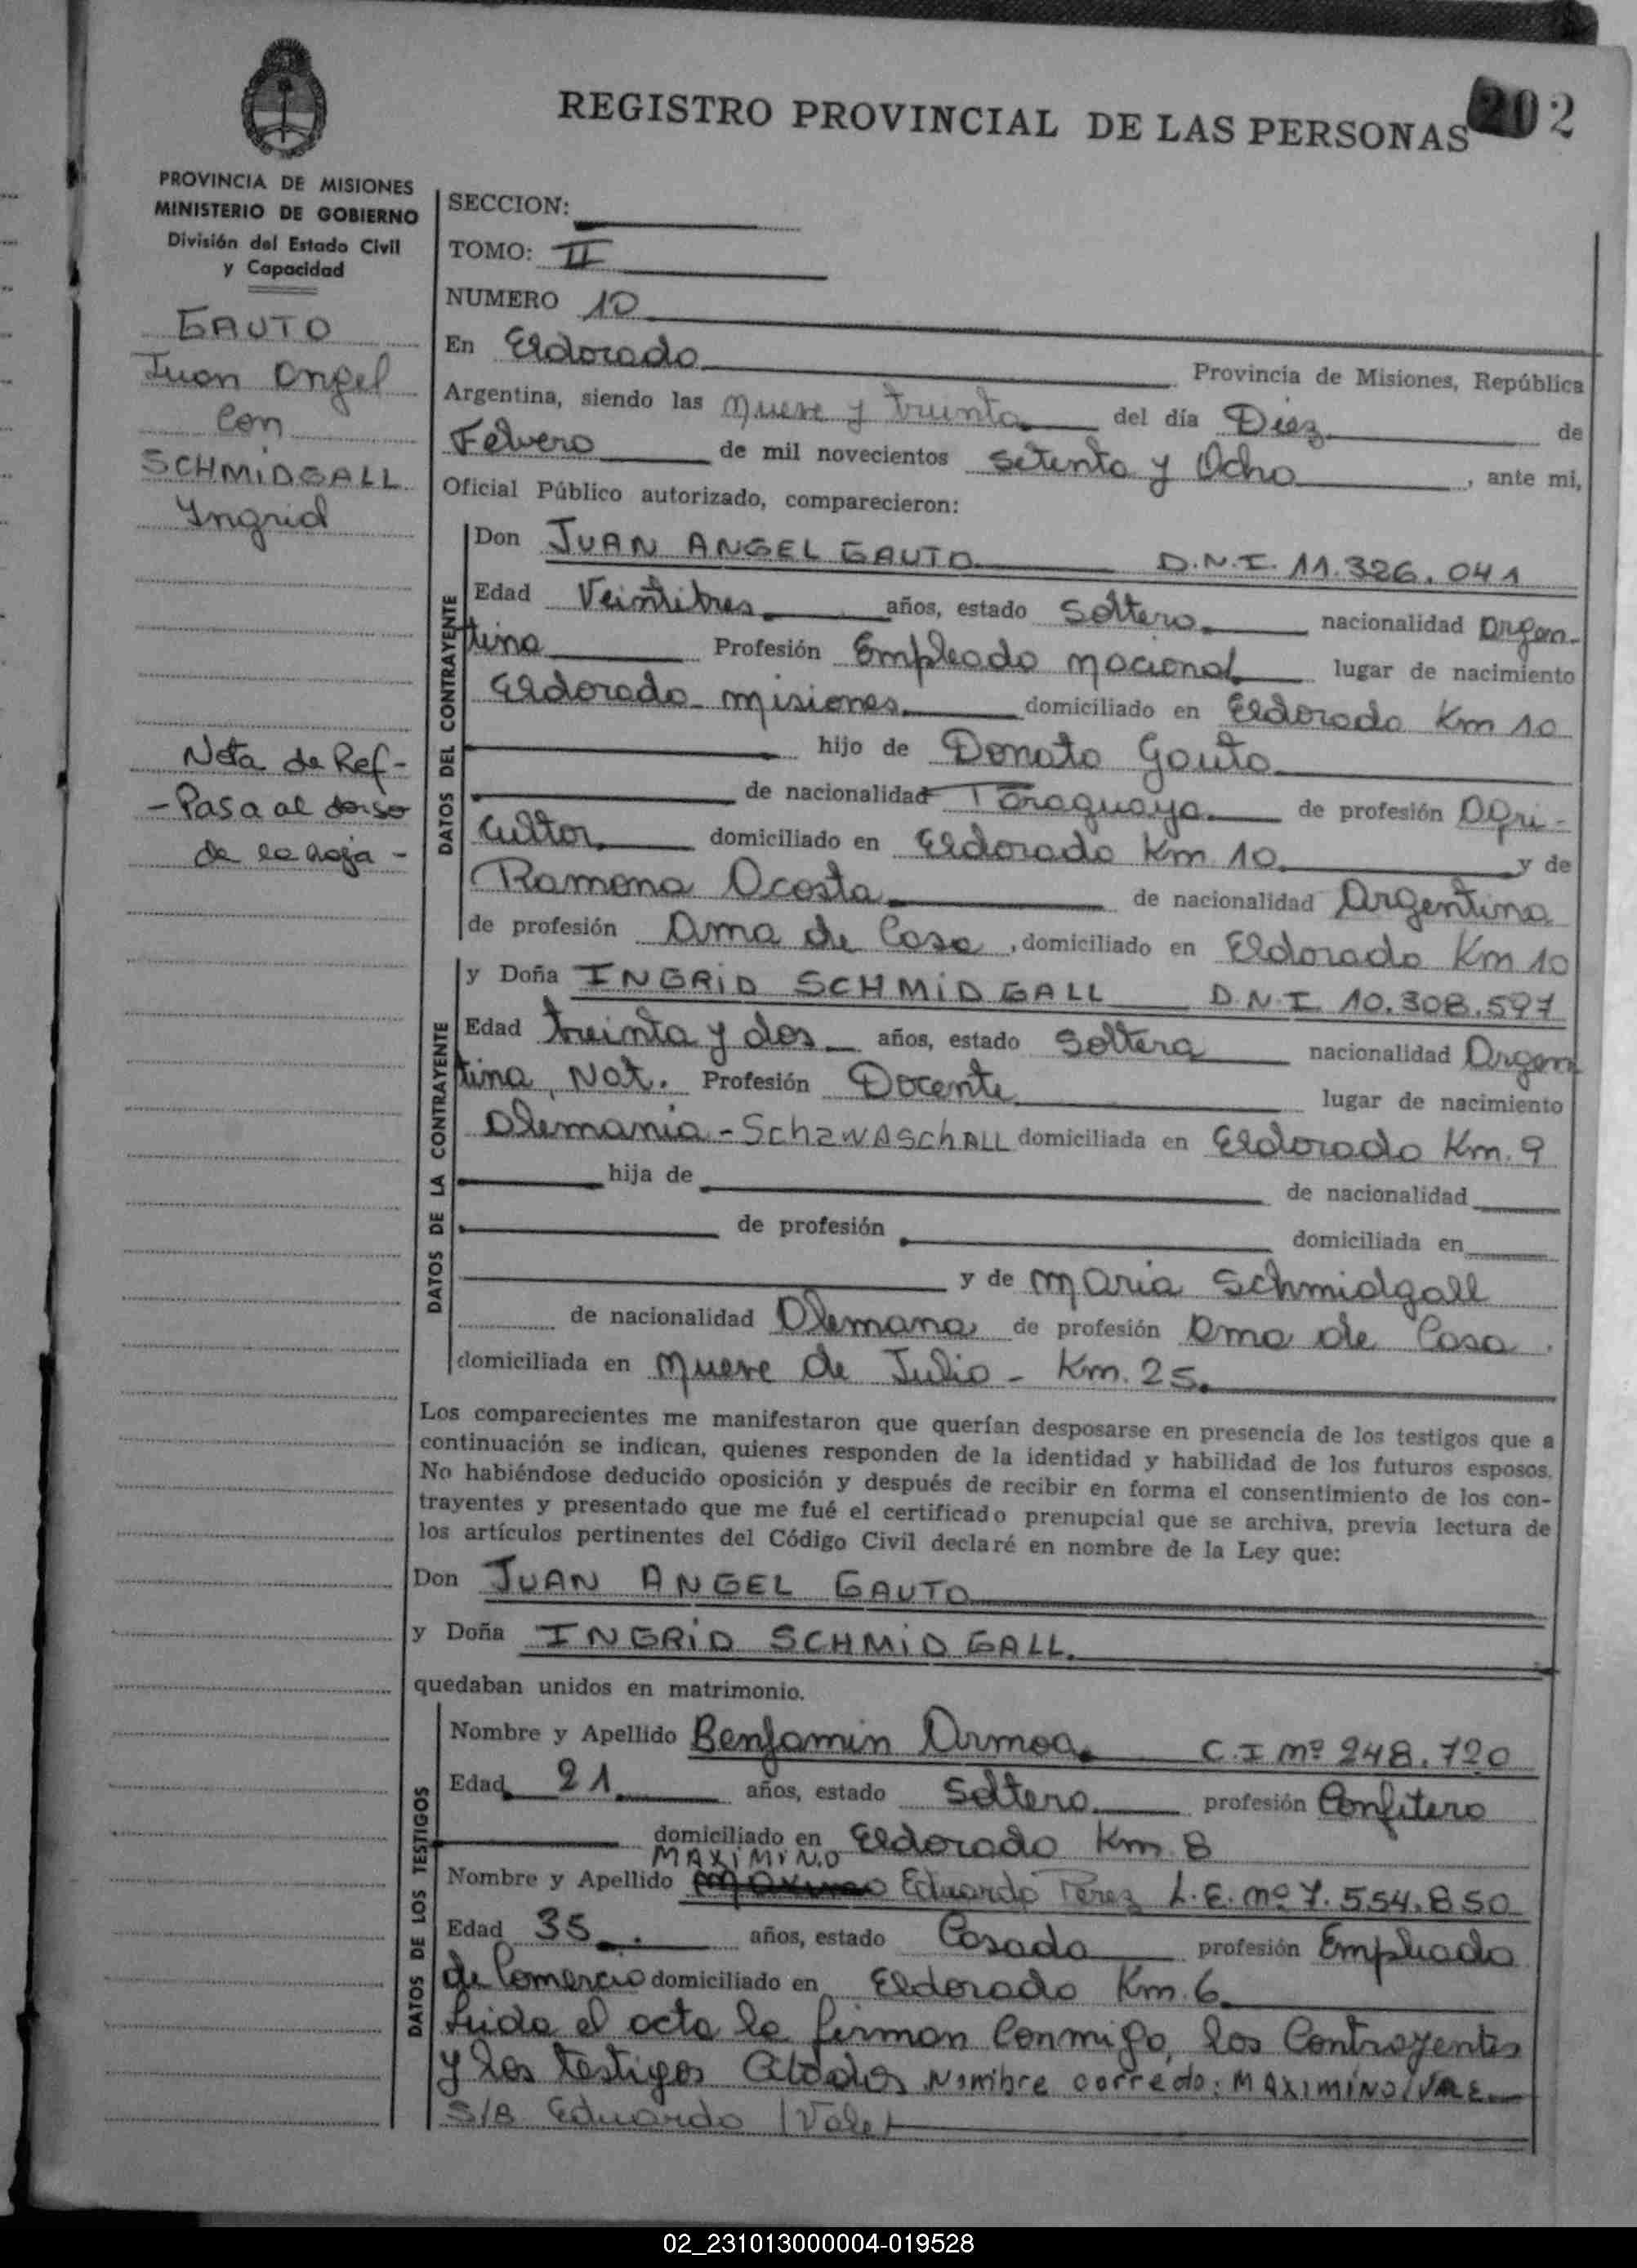 REGISTRO PROVINCIAL DE LAS PERSONAS 202
PROVINCIA DE MISIONES
MINISTERIO DE GOBIERNO
División del Estado Civil
y Capacidad
GAUTO
Juan Angel
con
SCHMIDGALL
Ingrid
Nota de Ref-
- Pasa al dorso
de la hoja -
SECCION:
TOMO: II
NUMERO 10
En Eldorado Provincia de Misiones, República
Argentina, siendo las nueve y treinta del día Diez de
Febrero de mil novecientos setenta y Ocho, ante mi,
Oficial Público autorizado, comparecieron:
DATOS DEL CONTRAYENTE
Don JUAN ANGEL GAUTO D.N.I. 11.326.041
Edad Veintitres años, estado Soltero nacionalidad Argen-
tina Profesión Empleado nacional lugar de nacimiento
Eldorado misiones domiciliado en Eldorado Km 10
hijo de Donato Gauto
de nacionalidad Paraguaya de profesión Agri-
cultor domiciliado en Eldorado Km 10 y de
Ramona Acosta de nacionalidad Argentina
de profesión Ama de Casa, domiciliado en Eldorado Km 10
DATOS DE LA CONTRAYENTE
y Doña INGRID SCHMIDGALL D.N.I. 10.308.597
Edad treinta y dos años, estado Soltera nacionalidad Argen
tina, Nat. Profesión Docente lugar de nacimiento
Alemania - SchzWASchALL domiciliada en Eldorado Km. 9
hija de de nacionalidad
de profesión domiciliada en
y de Maria Schmidgall
de nacionalidad Alemana de profesión Ama de Casa.
domiciliada en Nueve de Julio - Km. 25.
Los comparecientes me manifestaron que querían desposarse en presencia de los testigos que a
continuación se indican, quienes responden de la identidad y habilidad de los futuros esposos.
No habiéndose deducido oposición y después de recibir en forma el consentimiento de los con-
trayentes y presentado que me fué el certificado prenupcial que se archiva, previa lectura de
los artículos pertinentes del Código Civil declaré en nombre de la Ley que:
Don JUAN ANGEL GAUTO
y Doña INGRID SCHMIDGALL.
quedaban unidos en matrimonio.
DATOS DE LOS TESTIGOS
Nombre y Apellido Benjamin Armoa C.I nº 248.720
Edad 21 años, estado Soltero profesión Confitero
domiciliado en Eldorado Km. 8
MAXIMINO
Nombre y Apellido Eduardo Perez L.E. nº 7.554.850
Edad 35 años, estado Casado profesión Empleado
de Comercio domiciliado en Eldorado Km. 6
Leida el acta la firman Conmigo, los Contrayentes
y los testigos Citados Nombre corredo: MAXIMINO/VALE
S/B Eduardo /Vale/
02_231013000004-019528